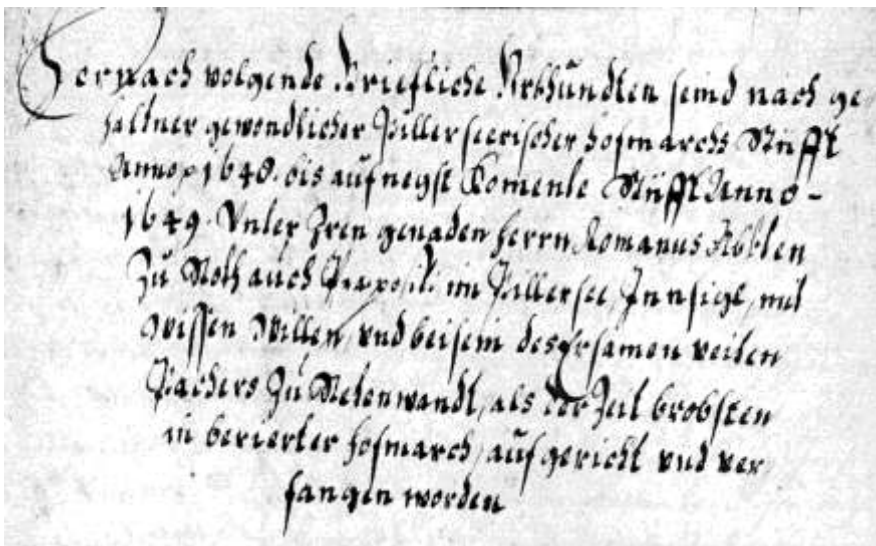 Hernach volgende Briefliche Urkhundten seind nach ge,
haltner gewondlicher Pillerseerischer Hofmarchs Stüfft
Anno 1648. bis auf negst komente Stüfft Anno -
1649. Unter Iren genaden herrn Romanus Abbten
Zu Roth auch Praepositi im Pillersee, Innsigl, mit
Wissen Willen, und beisein des Ersamen veiten
Pachers Zu Retenwandt, als der Zeit brobsten
in berierter hofmarch, aufgericht und ver,
fangen worden